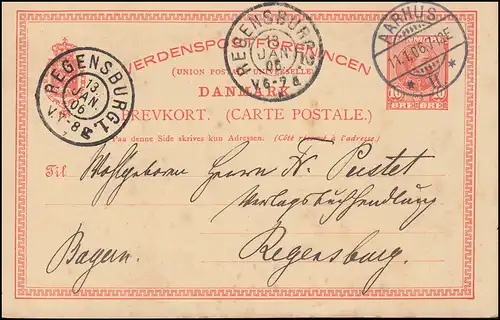 VERDENSPOSTFORENINGEN
(UNION POSTALE UNIVERSELLE)
DANMARK
BREVKORT. (CARTE POSTALE.)
Paa denne Side skrives kun Adressen. (Côté réservé à l'adresse.)
REGENSBURG 1.
13
JAN
06
V.7-8
REGENSBURG
13
JAN
06
V 6-7
AARHUS
11.1.06
10 10
ØRE ØRE
Til Wohlgeboren Herrn Fr. Pustet
Verlagsbuchhandlung
Bayern. Regensburg.